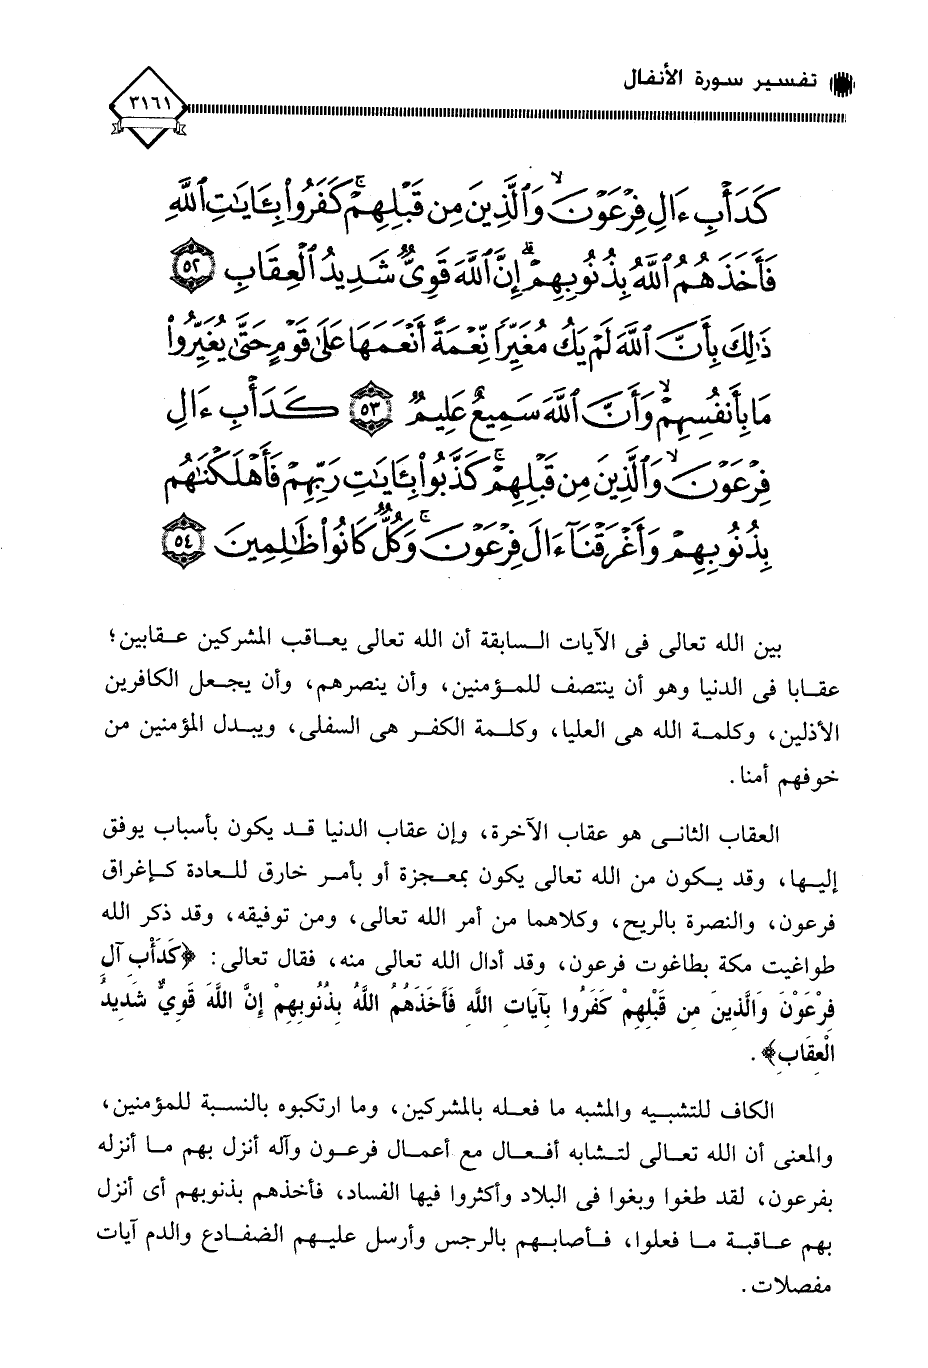 تفسير سورة الأنفال
٣١٦١
كَدَأْبِ ءَالِ فِرْعَوْنَ ۙ وَٱلَّذِينَ مِن قَبْلِهِمْ ۚ كَفَرُوا۟ بِـَٔايَـٰتِ ٱللَّهِ
فَأَخَذَهُمُ ٱللَّهُ بِذُنُوبِهِمْ ۗ إِنَّ ٱللَّهَ قَوِىٌّ شَدِيدُ ٱلْعِقَابِ ٥٢
ذَٰلِكَ بِأَنَّ ٱللَّهَ لَمْ يَكُ مُغَيِّرًا نِّعْمَةً أَنْعَمَهَا عَلَىٰ قَوْمٍ حَتَّىٰ يُغَيِّرُوا۟
مَا بِأَنفُسِهِمْ ۙ وَأَنَّ ٱللَّهَ سَمِيعٌ عَلِيمٌ ٥٣ كَدَأْبِ ءَالِ
فِرْعَوْنَ ۙ وَٱلَّذِينَ مِن قَبْلِهِمْ ۚ كَذَّبُوا۟ بِـَٔايَـٰتِ رَبِّهِمْ فَأَهْلَكْنَـٰهُم
بِذُنُوبِهِمْ وَأَغْرَقْنَآ ءَالَ فِرْعَوْنَ ۚ وَكُلٌّ كَانُوا۟ ظَـٰلِمِينَ ٥٤
بين الله تعالى فى الآيات السابقة أن الله تعالى يعاقب المشركين عقابين؛
عقابا فى الدنيا وهو أن ينتصف للمؤمنين، وأن ينصرهم، وأن يجعل الكافرين
الأذلين، وكلمة الله هى العليا، وكلمة الكفر هى السفلى، ويبدل المؤمنين من
خوفهم أمنا.
العقاب الثانى هو عقاب الآخرة، وإن عقاب الدنيا قد يكون بأسباب يوفق
إليها، وقد يكون من الله تعالى يكون بمعجزة أو بأمر خارق للعادة كإغراق
فرعون، والنصرة بالريح، وكلاهما من أمر الله تعالى، ومن توفيقه، وقد ذكر الله
طواغيت مكة بطاغوت فرعون، وقد أدال الله تعالى منه، فقال تعالى: ﴿كَدَأْبِ آلِ
فِرْعَوْنَ وَالَّذِينَ مِن قَبْلِهِمْ كَفَرُوا بِآيَاتِ اللَّهِ فَأَخَذَهُمُ اللَّهُ بِذُنُوبِهِمْ إِنَّ اللَّهَ قَوِيٌّ شَدِيدُ
الْعِقَابِ﴾.
الكاف للتشبيه والمشبه ما فعله بالمشركين، وما ارتكبوه بالنسبة للمؤمنين،
والمعنى أن الله تعالى لتشابه أفعال مع أعمال فرعون وآله أنزل بهم ما أنزله
بفرعون، لقد طغوا وبغوا فى البلاد وأكثروا فيها الفساد، فأخذهم بذنوبهم أى أنزل
بهم عاقبة ما فعلوا، فأصابهم بالرجس وأرسل عليهم الضفادع والدم آيات
مفصلات.